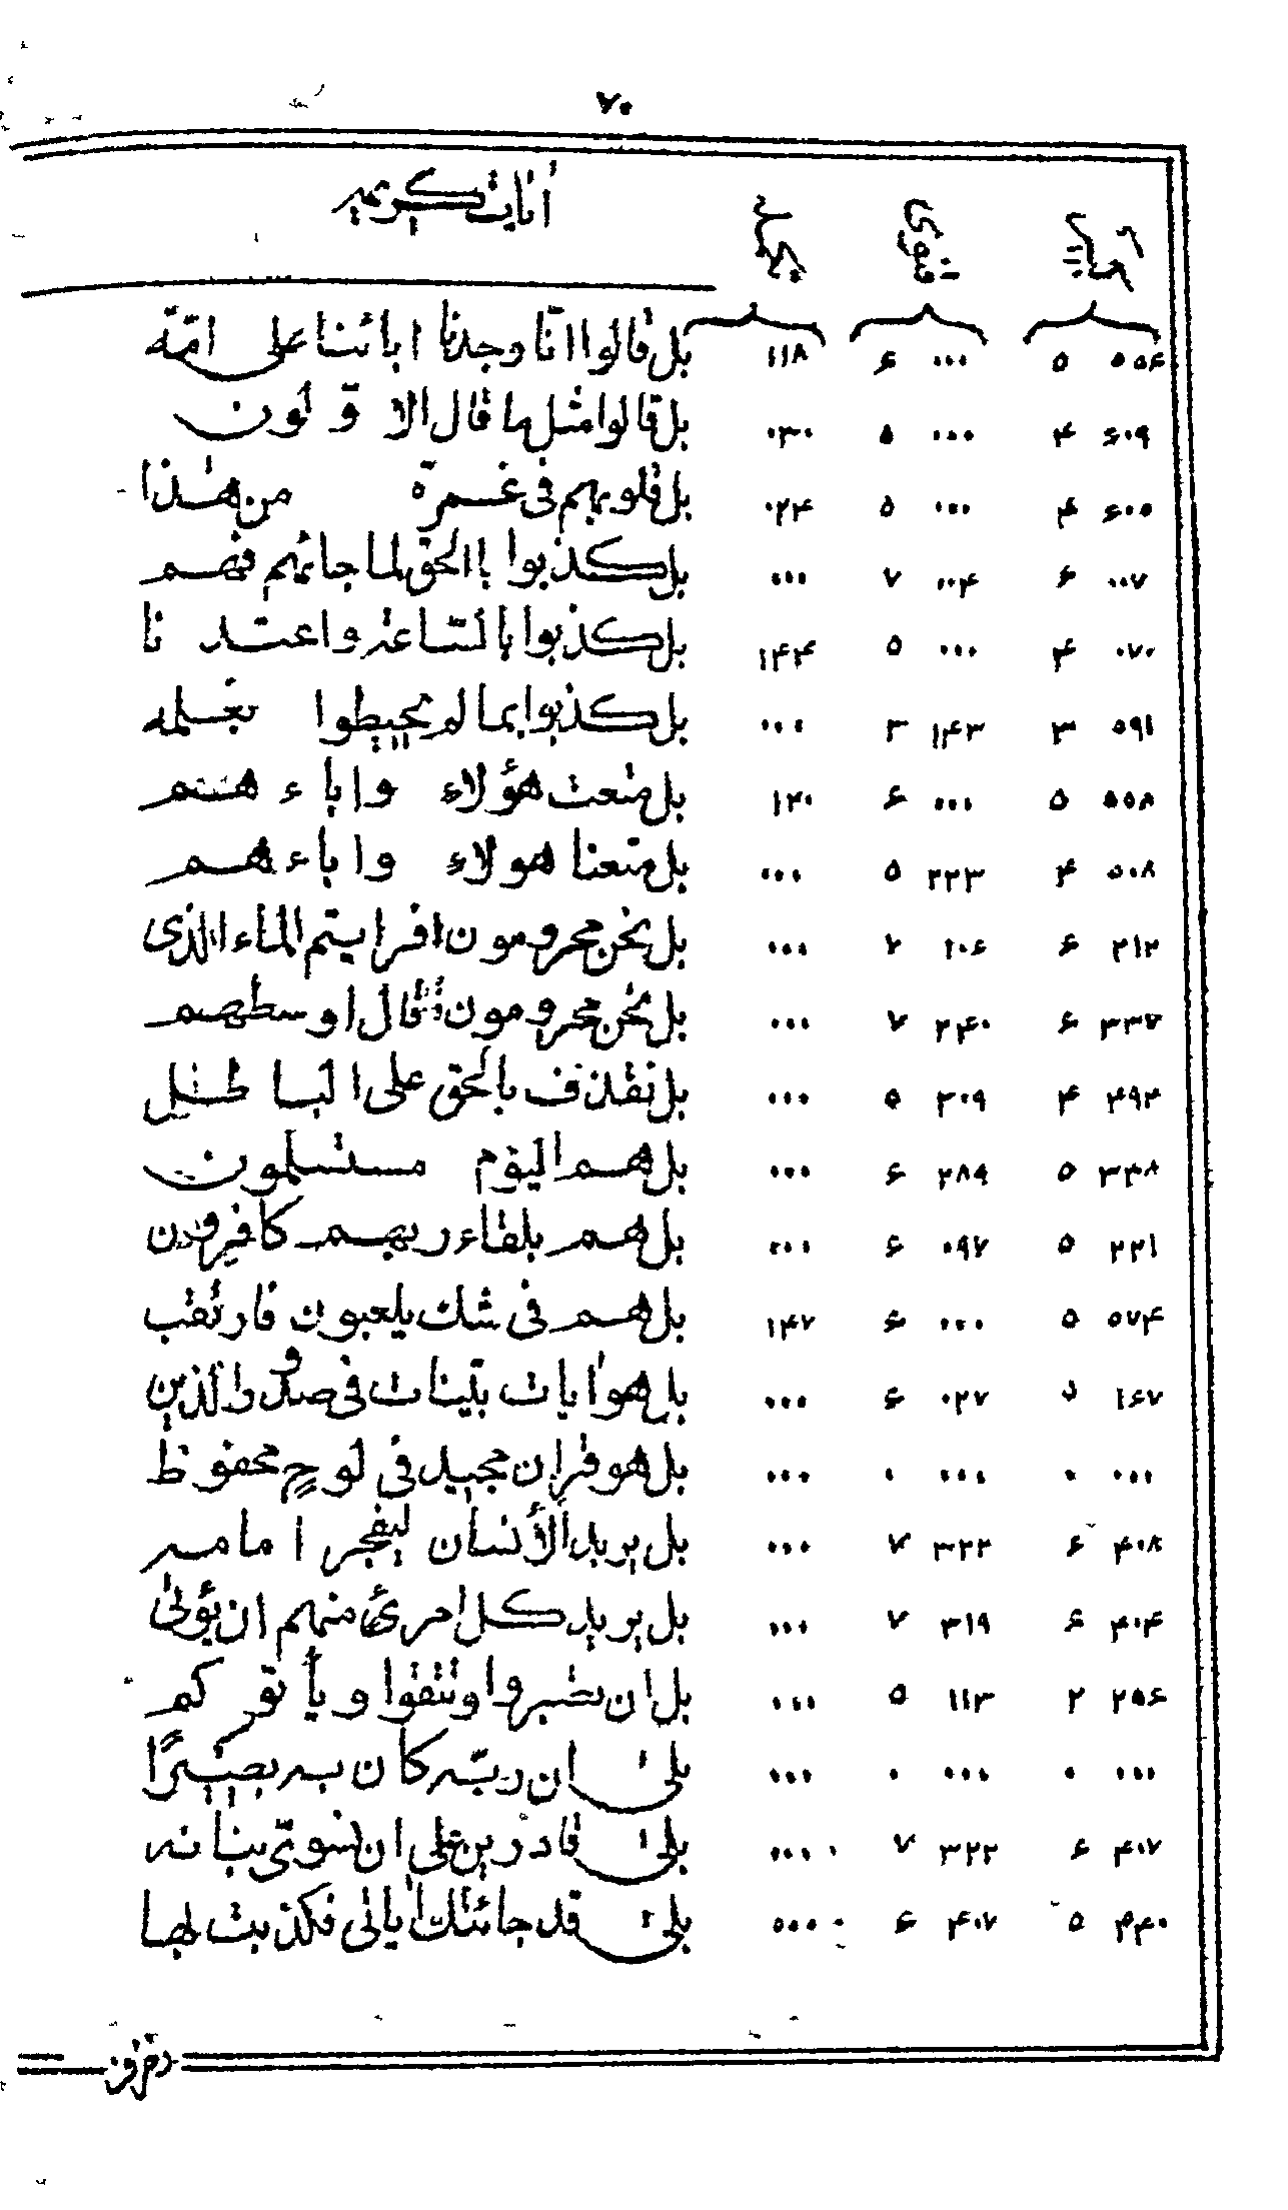 ۷۰
۵۵۴ ۵ ۰۰۰ ۶ ۱۱۸ بل قالوا انّا وجدنا ابائنا على امّة
۶۰۹ ۴ ۰۰۰ ۵ ۰۳۰ بل قالوا مثل ما قال الاوّلون
۶۰۵ ۴ ۰۰۰ ۵ ۰۲۴ بل قلوبهم فى غمرة من هذا
۰۰۷ ۶ ۰۰۴ ۷ ۰۰۰ بل كذبوا باالحق لما جائهم فهم
۰۷۰ ۴ ۰۰۰ ۵ ۱۴۴ بل كذبوا بالساعة واعتدنا
۵۹۱ ۳ ۱۴۳ ۳ ۰۰۰ بل كذبوا بما لم يحيطوا بعلمه
۵۵۸ ۵ ۰۰۰ ۶ ۱۲۰ بل متعت هؤلاء واباء هم
۵۰۸ ۴ ۲۲۳ ۵ ۰۰۰ بل متعنا هولاء واباء هم
۲۱۲ ۶ ۱۰۶ ۲ ۰۰۰ بل نحن محرومون افرايتم الماء الذى
۳۳۷ ۶ ۲۴۰ ۷ ۰۰۰ بل نحن محرومون قال اوسطهم
۴۹۲ ۴ ۳۰۹ ۵ ۰۰۰ بل نقذف بالحق على الباطل
۳۳۸ ۵ ۲۸۹ ۶ ۰۰۰ بل هم اليوم مستسلمون
۲۲۱ ۵ ۰۹۷ ۶ ۰۰۰ بل هم بلقاء ربهم كافرون
۵۷۴ ۵ ۰۰۰ ۶ ۱۴۲ بل هم فى شك يلعبون فارتقب
۱۶۷ ۵ ۰۲۷ ۶ ۰۰۰ بل هو ايات بيّنات فى صدور الذين
۰۰۰ ۰ ۰۰۰ ۰ ۰۰۰ بل هو قران مجيد فى لوح محفوظ
۴۰۸ ۶ ۳۲۲ ۷ ۰۰۰ بل يريد الأنسان ليفجر امامه
۴۰۴ ۶ ۳۱۹ ۷ ۰۰۰ بل يريد كل امرئ منهم ان يؤتى
۲۵۶ ۲ ۱۱۳ ۵ ۰۰۰ بل ان تصبروا وتتقوا ويأتوكم
۰۰۰ ۰ ۰۰۰ ۰ ۰۰۰ بلى ان ربّه كان به بصيرًا
۴۰۷ ۶ ۳۲۲ ۷ ۰۰۰ بلى قادرين على ان نسوّى بنانه
۴۴۰ ۵ ۴۰۷ ۶ ۰۰۰ بلى قد جائتك اياتى فكذبت بها